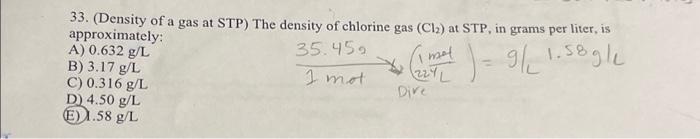 33. (Density of a gas at STP) The density of chlorine gas (Cl₂) at STP, in grams per liter, is
approximately:
A) 0.632 g/L
B) 3.17 g/L
C) 0.316 g/L
D) 4.50 g/L
E) 1.58 g/L
35.45g
1 mol
(1 mol
22.4L) = g/L 1.58 g/L